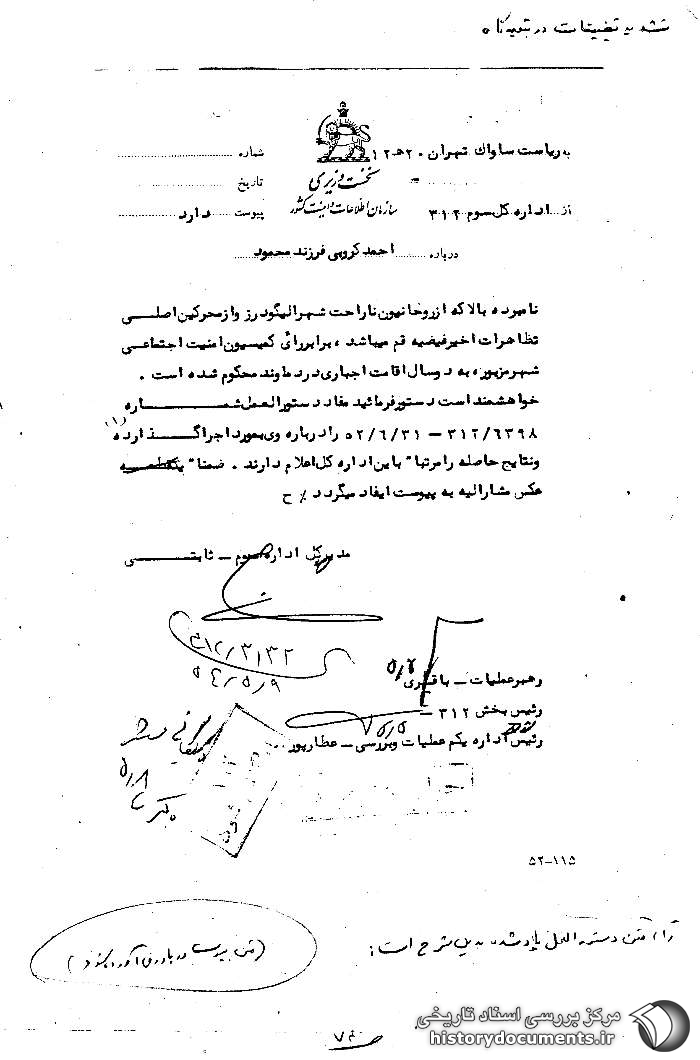 تشدید تضییقات در تبعیدگاه
به ریاست ساواک تهران . ۲ ه‍ ۱۲
شماره
نخست وزیری
تاریخ
از اداره کل سوم ۳۱۲
سازمان اطلاعات و امنیت کشور
پیوست دارد
درباره احمد کروبی فرزند محمود
نامبرده بالا که از روحانیون ناراحت شهر الیگودرز و از محرکین اصلی
تظاهرات اخیر فیضیه قم میباشد ، برابر رائ کمیسیون امنیت اجتماعی
شهر مزبوره به دو سال اقامت اجباری در دماوند محکوم شده است .
خواهشمند است دستور فرمائید مفاد دستورالعمل شماره
۳۱۲/۶۳۹۸ – ۵۲/۶/۳۱ را درباره وی بمورد اجرا گذارده (۱)
و نتایج حاصله را مرتبا" باین اداره کل اعلام دارند . ضمنا" یکقطعه
عکس مشارالیه به پیوست ایفاد میگردد ٪ ح
مدیر کل اداره سوم – ثابتی
۳۱۲/۳۱۳۲
۵۴/۵/۹
رهبر عملیات – باقری ۵/۴
رئیس بخش ۳۱۲ –
رئیس اداره یکم عملیات و بررسی – عطارپور
۵/۸
۵۲-۱۱۵
(۱) متن دستورالعمل یاد شده بدین شرح است:
(متن پیوست در پاورقی آورده شود)
۷۴
مرکز بررسی اسناد تاریخی
historydocuments.ir